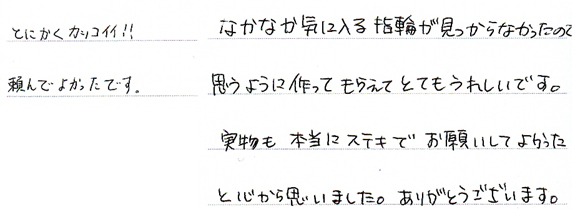 とにかくカッコイイ!!
頼んでよかったです。
なかなか気に入る指輪が見つからなかったので
思うように作ってもらえてとてもうれしいです。
実物も本当にステキでお願いしてよかった
と心から思いました。ありがとうございます。